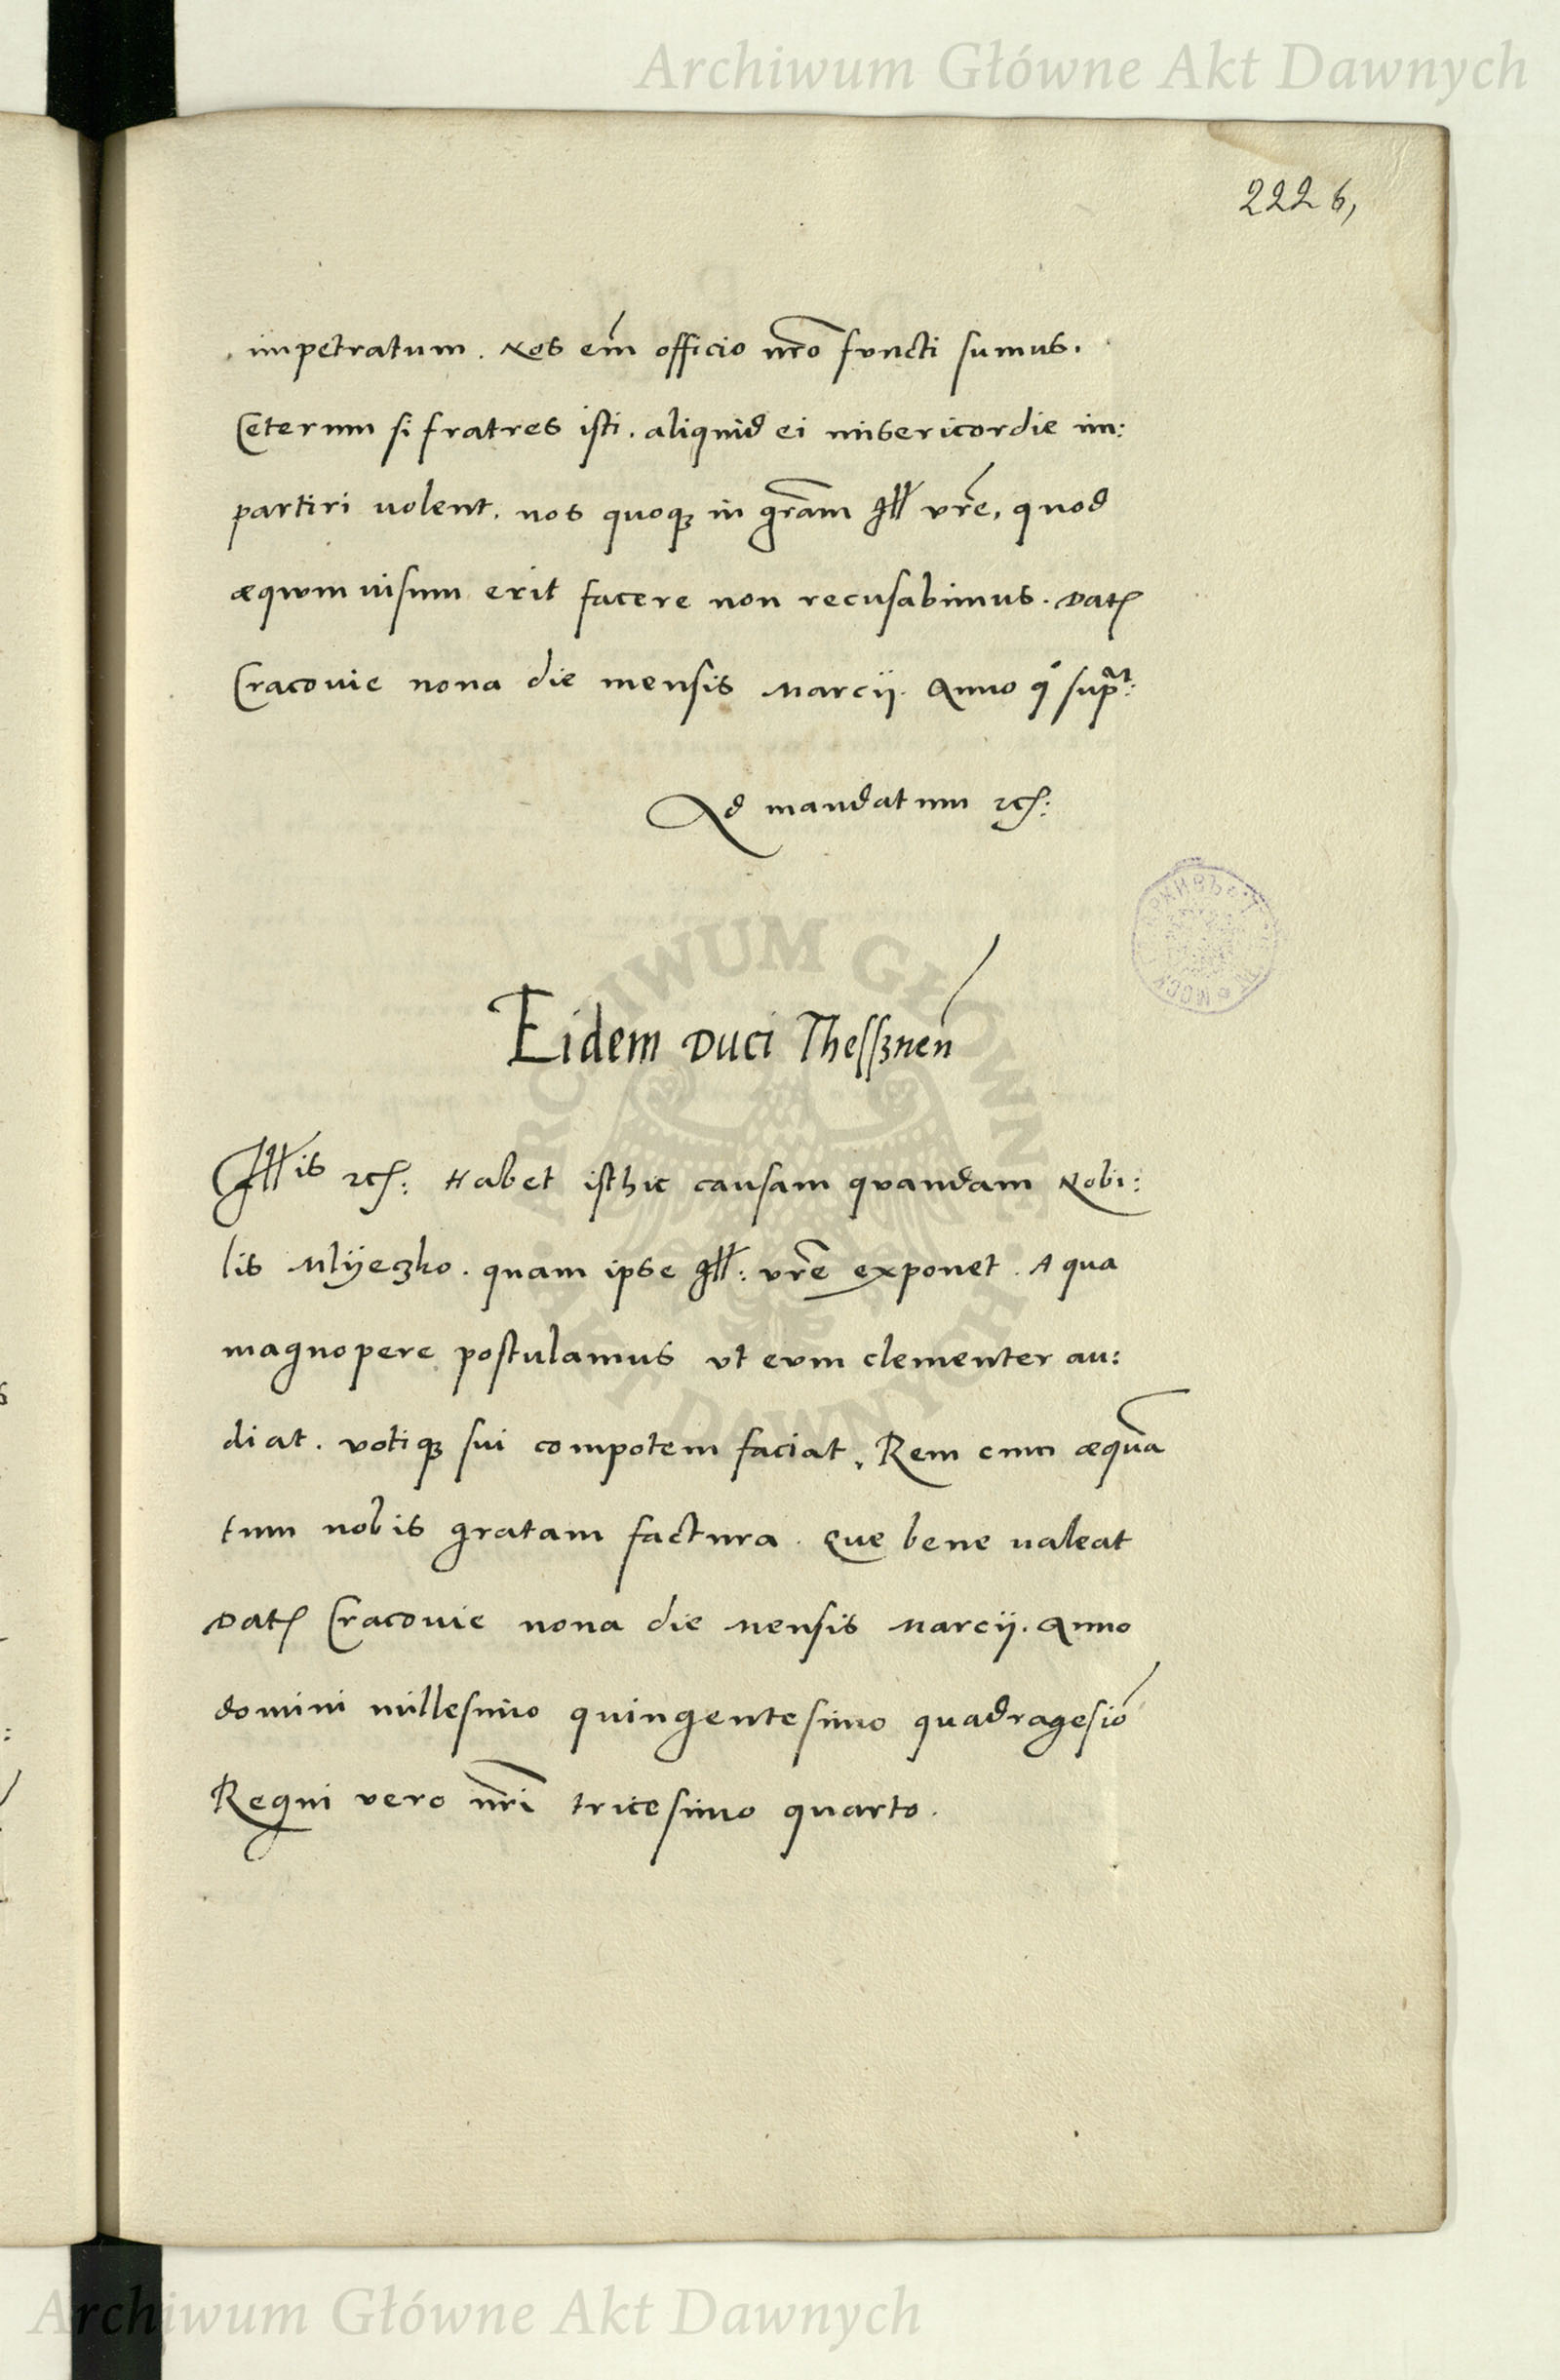 Archiwum Główne Akt Dawnych
222 6,
impetratum. Nos em̄ officio nr̄o functi sumus.
Ceterum si fratres isti. aliquid ei misericordie im:
partiri uolent. nos quoqꝫ in gr̄am Ill vr̄e, quod
æqwm uisum erit facere non recusabimus. Datꝭ
Cracouie nona die mensis Marcij. Anno qͦ supᵃᵗ:
Ad mandatum ꝛcꝭ:
Eidem Duci Thesſznen̄
Illis ꝛcꝭ: Habet isthic causam quandam Nobi:
lis Mlÿeczko. quam ipse Ill: vr̄e exponet. A qua
magnopere postulamus vt eum clementer au:
diat. votiqꝫ sui compotem faciat. Rem enim æquā
tum nobis gratam factura. Que bene ualeat
Datꝭ Cracouie nona die Mensis Marcij. Anno
domini millesimo quingentesimo quadragesiō
Regni vero nr̄i tricesimo quarto.
ARCHIWUM GŁÓWNE AKT DAWNYCH
Archiwum Główne Akt Dawnych